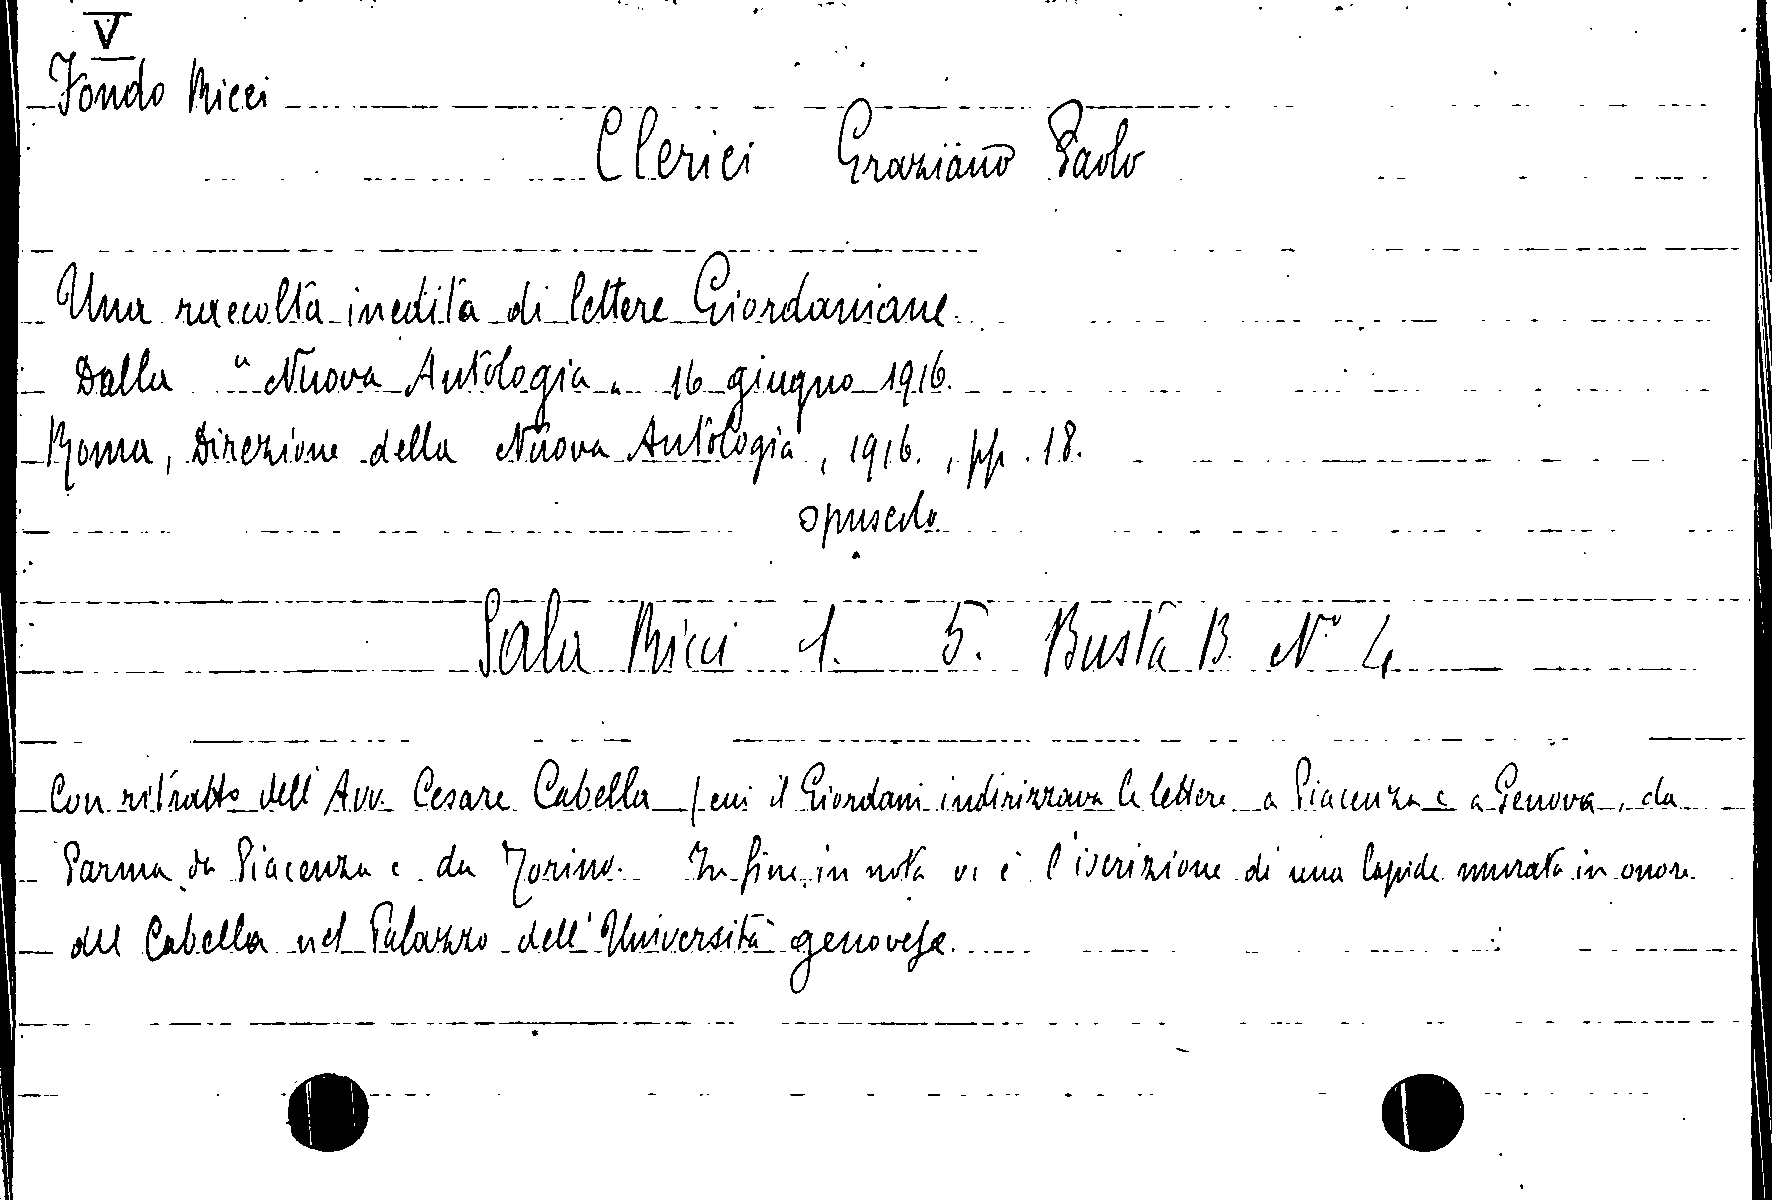 V
Fondo Ricci
Clerici Graziano Paolo
Una raccolta inedita di lettere Giordaniane.
Dalla "Nuova Antologia" 16 giugno 1916.
Roma, Direzione della Nuova Antologia, 1916., pp. 18.
opuscolo
Sala Ricci 1. 5. Busta B. N° 4
Con ritratto dell'Avv. Cesare Cabella (cui il Giordani indirizzava le lettere a Piacenza e a Genova, da
Parma, da Piacenza e da Torino. In fine, in nota vi è l'iscrizione di una lapide murata in onore
del Cabella nel Palazzo dell'Università genovese.